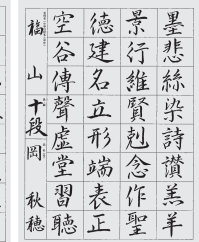 墨悲絲染詩讃羔羊
景行維賢剋念作聖
徳建名立形端表正
空谷傳聲虚堂習聴
福山 十段 岡秋穂